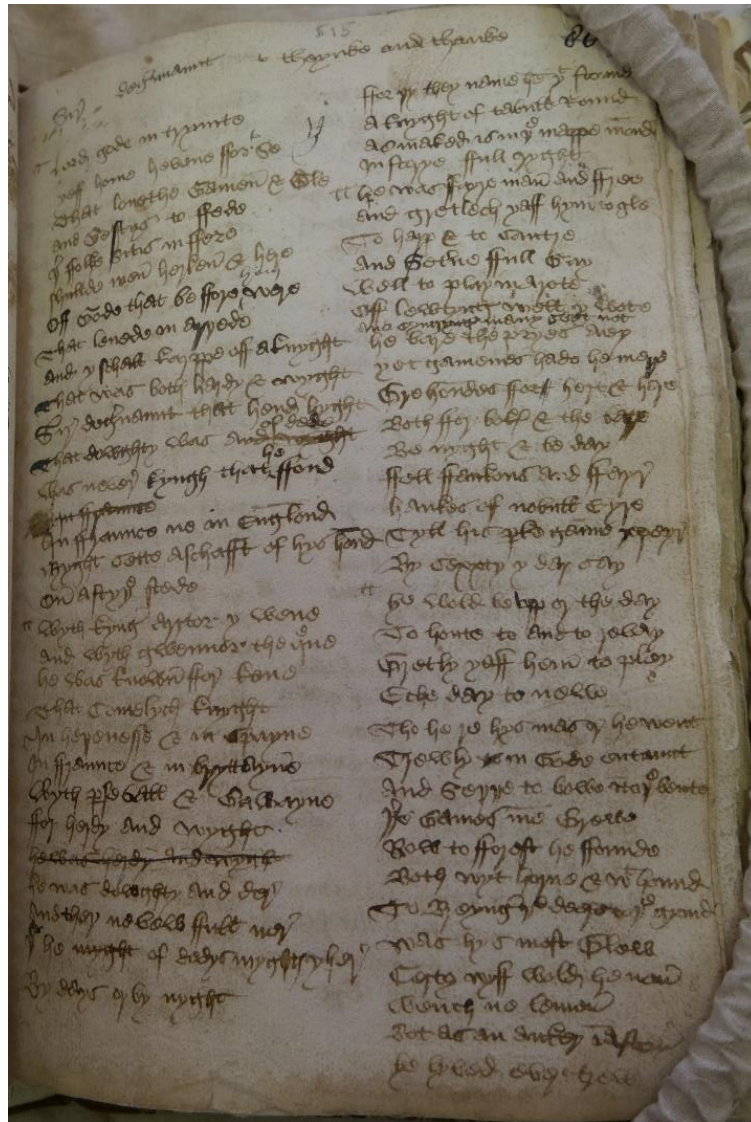 515
degrevaunt thynke and thanke 86
Sir
Lord gode in trynite
yeff home hevene ffor to Se
That lovethe Gamen & Gle
And Gestys to ffede
Þer folke sitis in fere
shullde men herken & here
Off Gode that be ffore hem were
That levede in arthede
And y schall karppe off a knyght
That was both hardy & wyght
Sir degrevaunt that hend hyght
That dowghty was of dede
was never kyngh that he ffond
In ffraunce ne in Englond
myght sette aschafft of hys hond
On a styþe stede
Wyth kyng Artor y wene
And wyth Gwennor the quene
he was knowun ffor kene
That Comelych knyght
In heþenesse & in Spayne
In ffraunce & in brytayne
Wyth persevall & Gawayne
ffor herdy and wyght
he was herdy and wyght
he was dowghty and der
And ther ffull ner
he myght of dedys her
By days or by nyght
ffor þy they name he þat stound
A knyght of tabull Round
As maked is in þe mappe mond
In storye ffull ryght
he was ffayre man and ffree
And gretlech yaff hym to gle
To harp & to Sautre
And ffull Gay
Well to play in a rote
Off lewtyng well y wote
And syngyng many not
he bare the pryes aey
yet gamenes hade he mare
Grehondes ffor hert & hare
Both ffor & the
Be nyght & be day
ffell ffaukons and ffayr
haukes of nobull Eyre
Tyll his perke game repeyr
By Sexty y dar say
he wold be upp or the day
To honte and to revay
Gretly yaff hem to play
Eche day to newe
Tho he re hys mas or he went
Trewly in Gode entaunt
And to bowe bente
Þer Games ine Grewe
Now to fforest he founde
Both wyt horne & wt hound
To Breyng þe deere to þe grond
was hys most Glew
Certus wyff wold he non
Wench ne lemon
Bot as an anker in a ston
he lyved ever trew